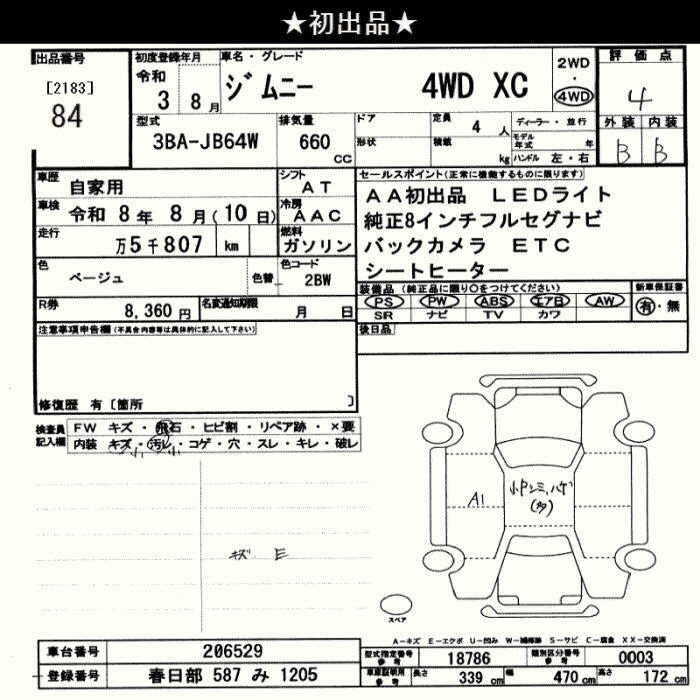 ★初出品★
出品番号
[2183]
84
初度登録年月
令和
3 8月
車名・グレード
ジムニー 4WD XC
2WD
・
4WD
評価点
4
外装 内装
B B
型式
3BA-JB64W
排気量
660
CC
ドア
形状
定員
4 人
積載
kg
ディーラー・並行
モデル年式 年
ハンドル 左・右
車歴 自家用
シフト AT
車検 令和 8年 8月(10日)
冷房 AAC
走行 万5千807 km
燃料 ガソリン
色 ベージュ
色替
色コード 2BW
R券 8,360円
名変通知期限 月 日
セールスポイント(正常に機能するものに限ります)
AA初出品 LEDライト
純正8インチフルセグナビ
バックカメラ ETC
シートヒーター
装備品(純正品に限り○をつけてください)
PS PW ABS エアB AW
SR ナビ TV カワ
新車保証書
有・無
後日品
注意事項申告欄(不具合内容等は具体的に記入して下さい)
修復歴 有〔箇所 〕
検査員記入欄
FW キズ・飛石・ヒビ割・リペア跡・×要
内装 キズ・汚レ・コゲ・穴・スレ・キレ・破レ
小 小
キズ E
A1
小中シミ、ハゲ
(多)
スペア
A-キズ E-エクボ U-凹み W-補修跡 S-サビ C-腐食 XX-交換済
車台番号 206529
登録番号 春日部 587 み 1205
型式指定番号参考 18786
類別区分番号参考 0003
車庫証明用参考 長さ 339 cm 幅 470 cm 高さ 172 cm